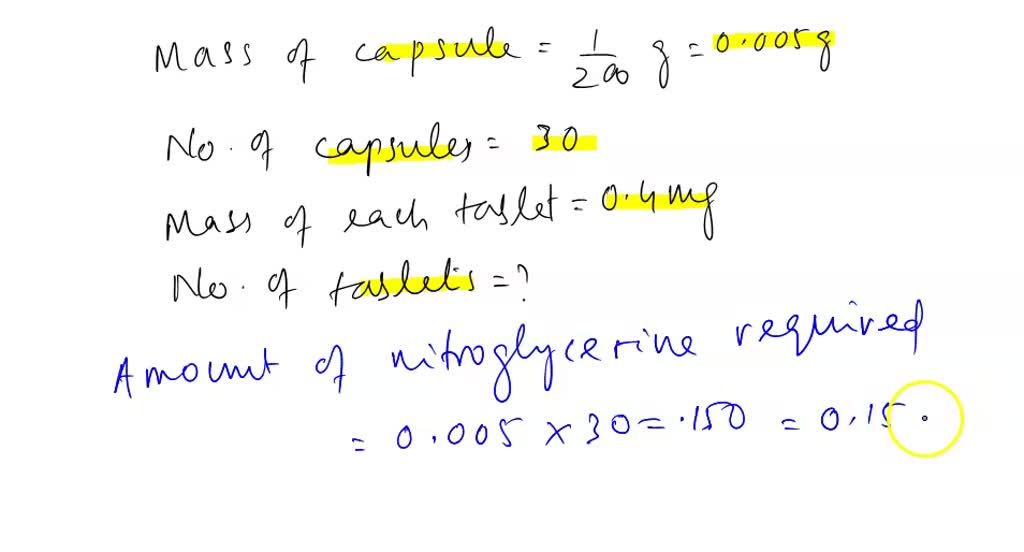 Mass of capsule = 1/200 g = 0.005g
No. of capsules = 30
Mass of each tablet = 0.4mg
No. of tablets = ?
Amount of nitroglycerine required
= 0.005 x 30 = .150 = 0.15